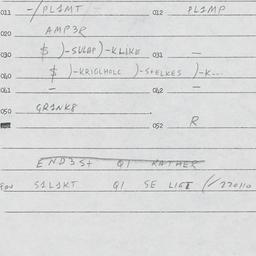 011 -/PL1MT 012 PL1MP
020 AMP3R
030 $ )-SULAP)-KLIKE 031 —
040 $ )-KRIGLHOLC )-STELKES )-K...
041 — 042 —
050 GR1NK8
052 R
END3St Q1 RATHER
S1L1KT Q1 SE LIGT (/220110